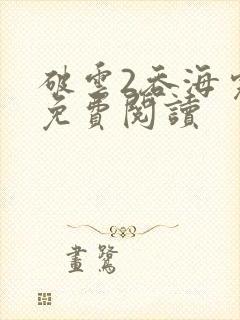 破雲2吞海
免費閱讀
畫鷺